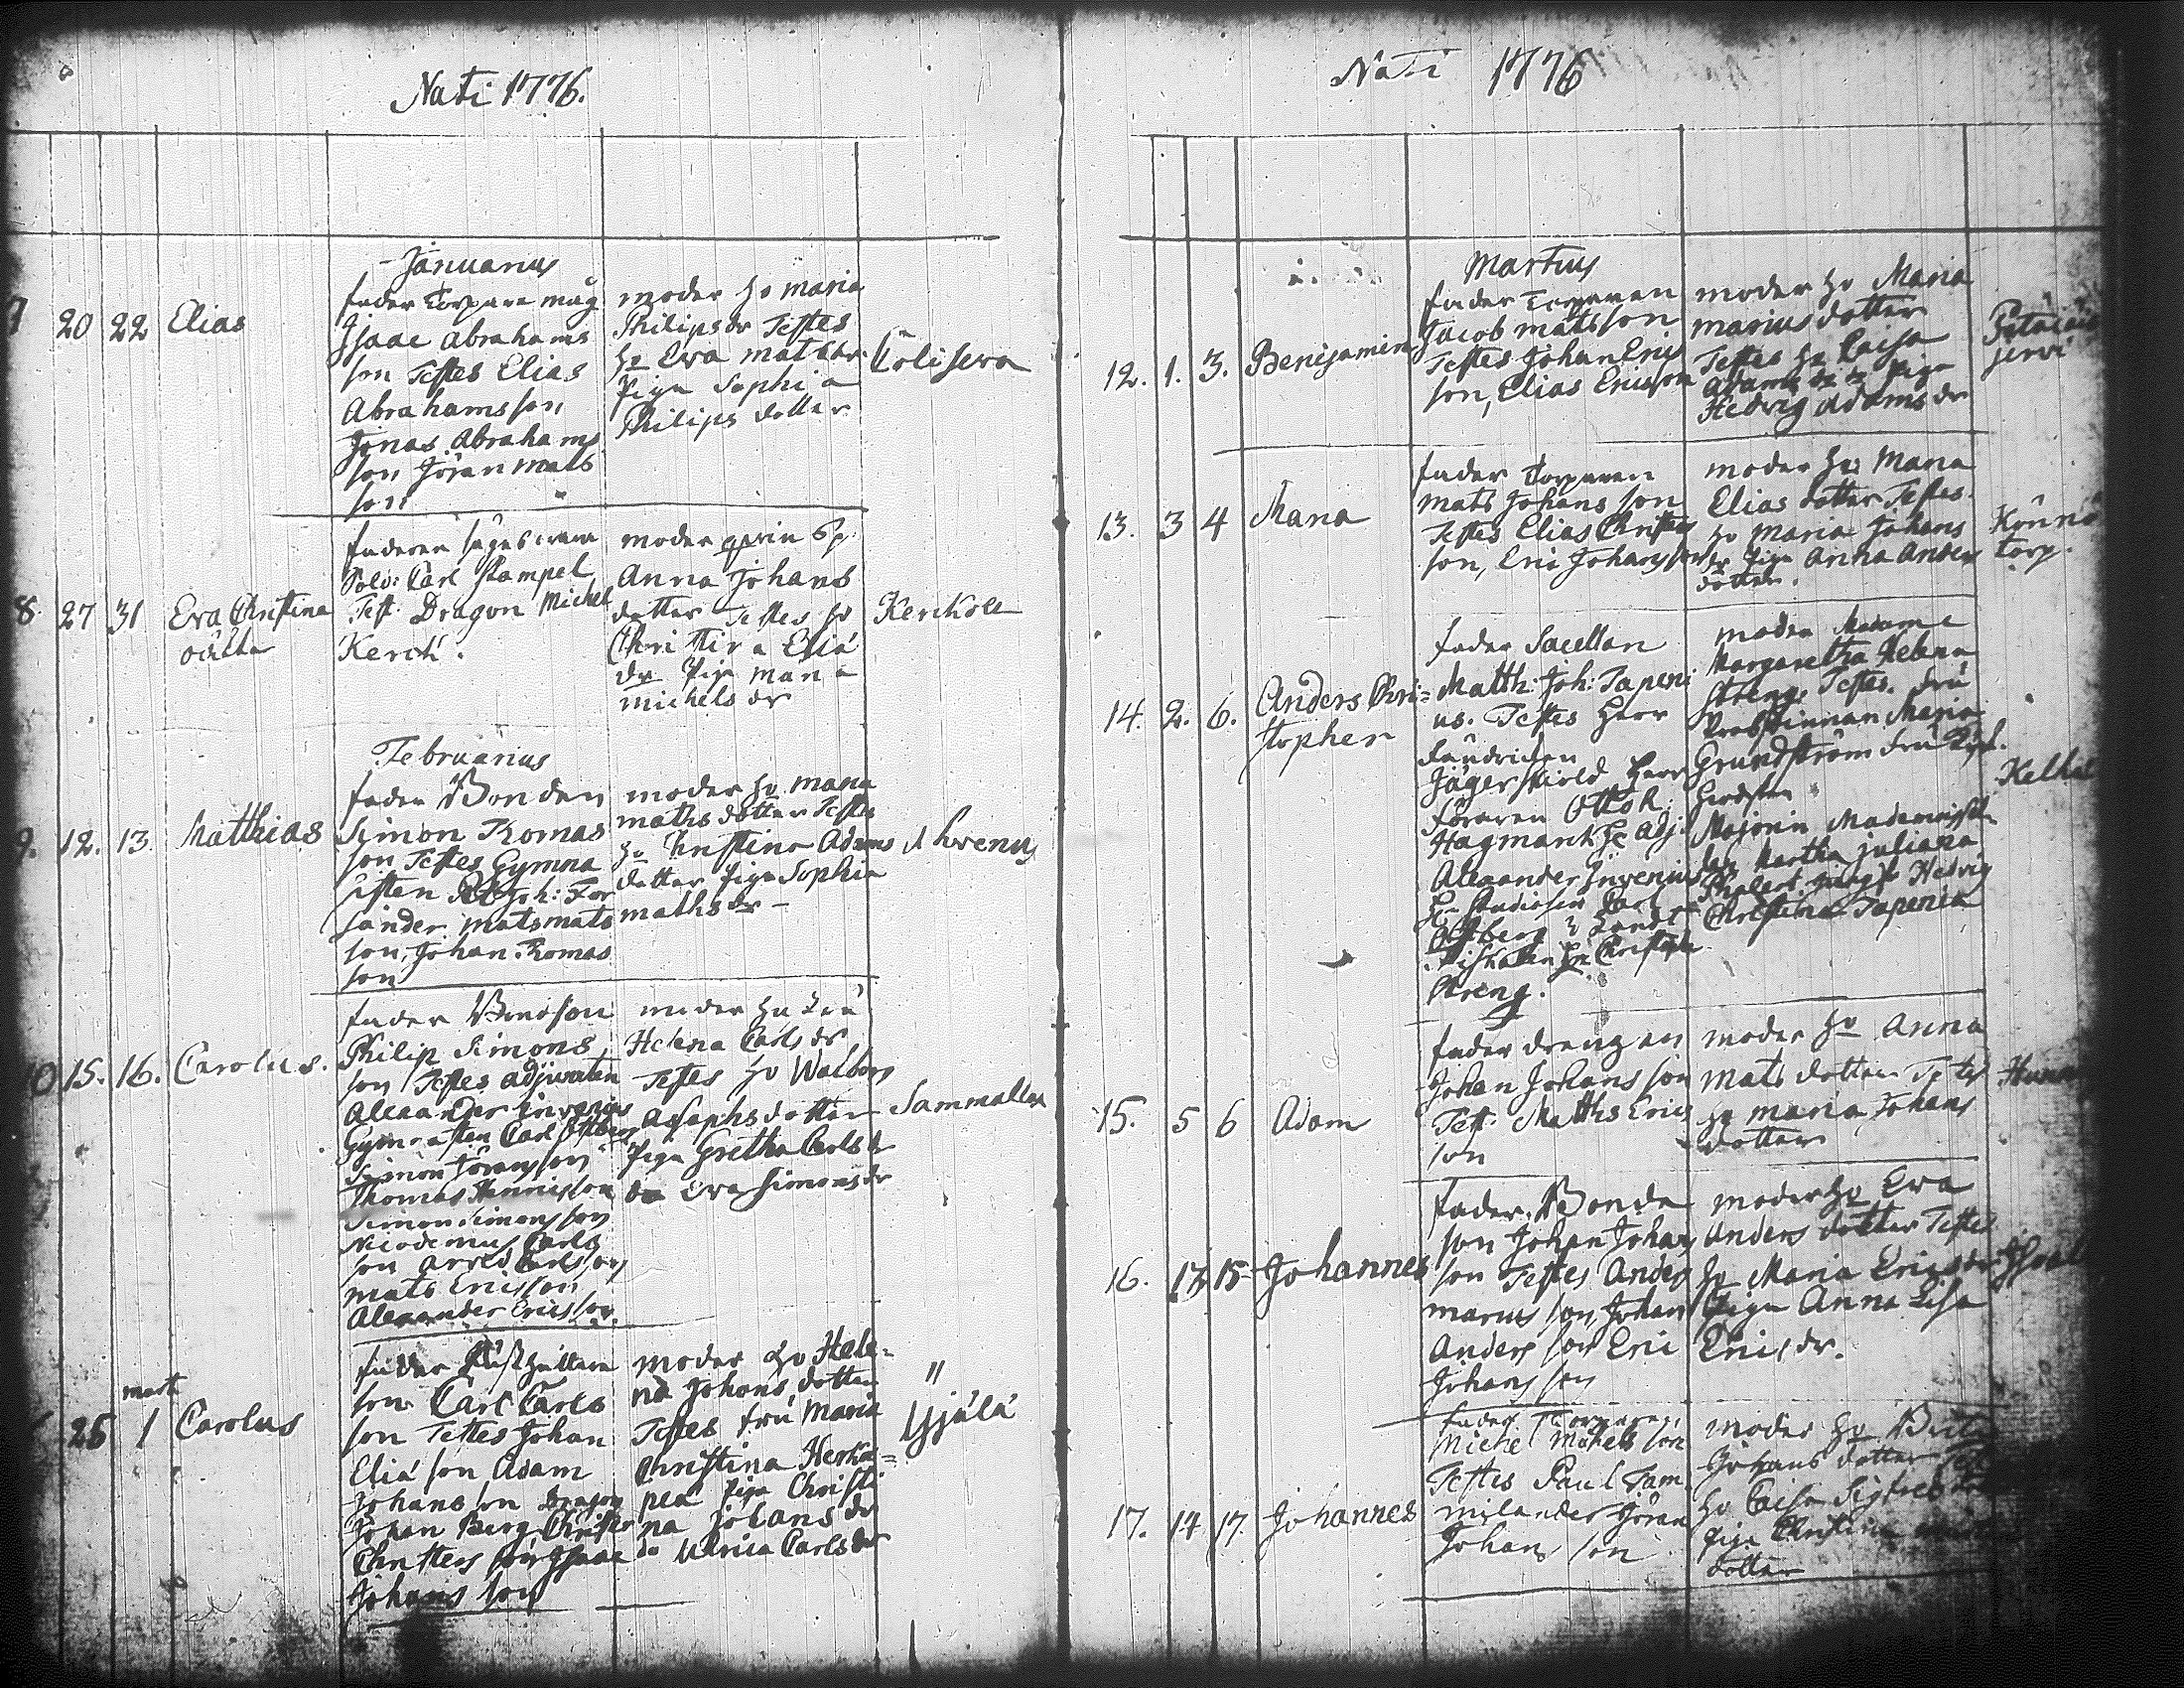 Nati 1776.
Januarius
7 20 22 Elias
fader Torpare måg
Isaac Abrahams
son Testes Elias
Abrahamsson
Jonas Abrahams
son Jöran mats
son
moder h: maria
Philipsdr Testes
h: Eva matsdr
Piga Sophia
Philips dotter
8. 27 31 Eva Christina
oächta
faderen säges vara
Sold: Carl Stampel
Test. Dragon Michel
Kerck.
moder qvin
Anna Johans
dotter Testes h:
Christina Elia
dr Piga Maria
michels dr
Kerkole
Februarius
9. 12. 13. Matthias
fader Bonden
Simon Thomas
son Testes Gymna
sisten Joh: For
sander mats mats
son, Johan Thomas
son
moder h: Maria
maths dotter Testes
h: Christina Adams
dotter Piga Sophia
mathsdr
10 15. 16. Carolus.
fader Bondson
Philip Simons
son Testes adjuncten
Alexander Inverius
Gymnasten Carl
Simon Göransson
Thomas Hinrisson
Simon Simonsson
Nicodemus Carls
son Arvid Carlsson
mats Ericsson
Alexander Ericsson.
moder
Helena Carlsdr
Testes h: Walborg
Asephsdotter
Piga Gretha Carlsdr
do Eva Simonsdr
Sammallen
mart
25 1 Carolus
fader
son Carl Carls
son Testes Johan
Elia son Adam
Johans son Dragon
Johan Berg Christer
Christers son Isaac
Johans son
moder h: Hele=
na Johans dotter
Testes fru Maria
Christina Herkæ=
pea Piga Christi
na Johans dr
do Ulrica Carlsdr
"
Yjälä
Nati 1776
Martius
12. 1. 3. Benjamin
fader Torparen
Jacob matsson
Testes Johan Erics
son, Elias Ericsson
moder h: Maria
marius dotter
Testes h: Caisa
Adams dr Piga
Hedvig Adams dr
jervi
13. 3 4 Maria
fader Torparen
mats Johans son
Testes Elias Christers
son, Eric Johansson
moder h: Maria
Elias dotter Testes
h: Maria Johans
dr Piga Anna Anders
dotter.
Könnö
torp.
14. 2. 6. Anders Chri=
stopher
fader Sacellan
Matth: Joh: Tapeni
us. Testes Herr
Fändrichen
Jägerskiöld Herr
Föraren Otto R.
Hagmark H: Adj:
Alexander Inverius
H: Studiosen Carl
Fiskalen H: Christoph
Streng.
moder Madame
Margaretha Helena
Streng. Testes. Fru
Probstinnan Maria
Grundström Fru
Majorin Mademoiselle
Martha Juliana
Hedvig
Christina Tapenia
15. 5 6 Adam
fader drengen
Johan Johans son
Test. Matths Erics
son
moder h: Anna
mats dotter Testes
h: Maria Johans
dotter
16. 13 15 Johannes
fader Bonde
son Johan Johans
son Testes Anders
marius son, Johan
Anders son Eric
Johans son
moder h: Eva
Anders dotter Testes
h: Maria Ericsdr
Piga Anna Lisa
Erics dr.
17. 14 17. Johannes
fader Torparen
Michel Michels son
Testes Paul Tam
milander Jöran
Johans son
moder h:
Johans dotter
h: Caisa Sigfreds
Piga Christina
dotter